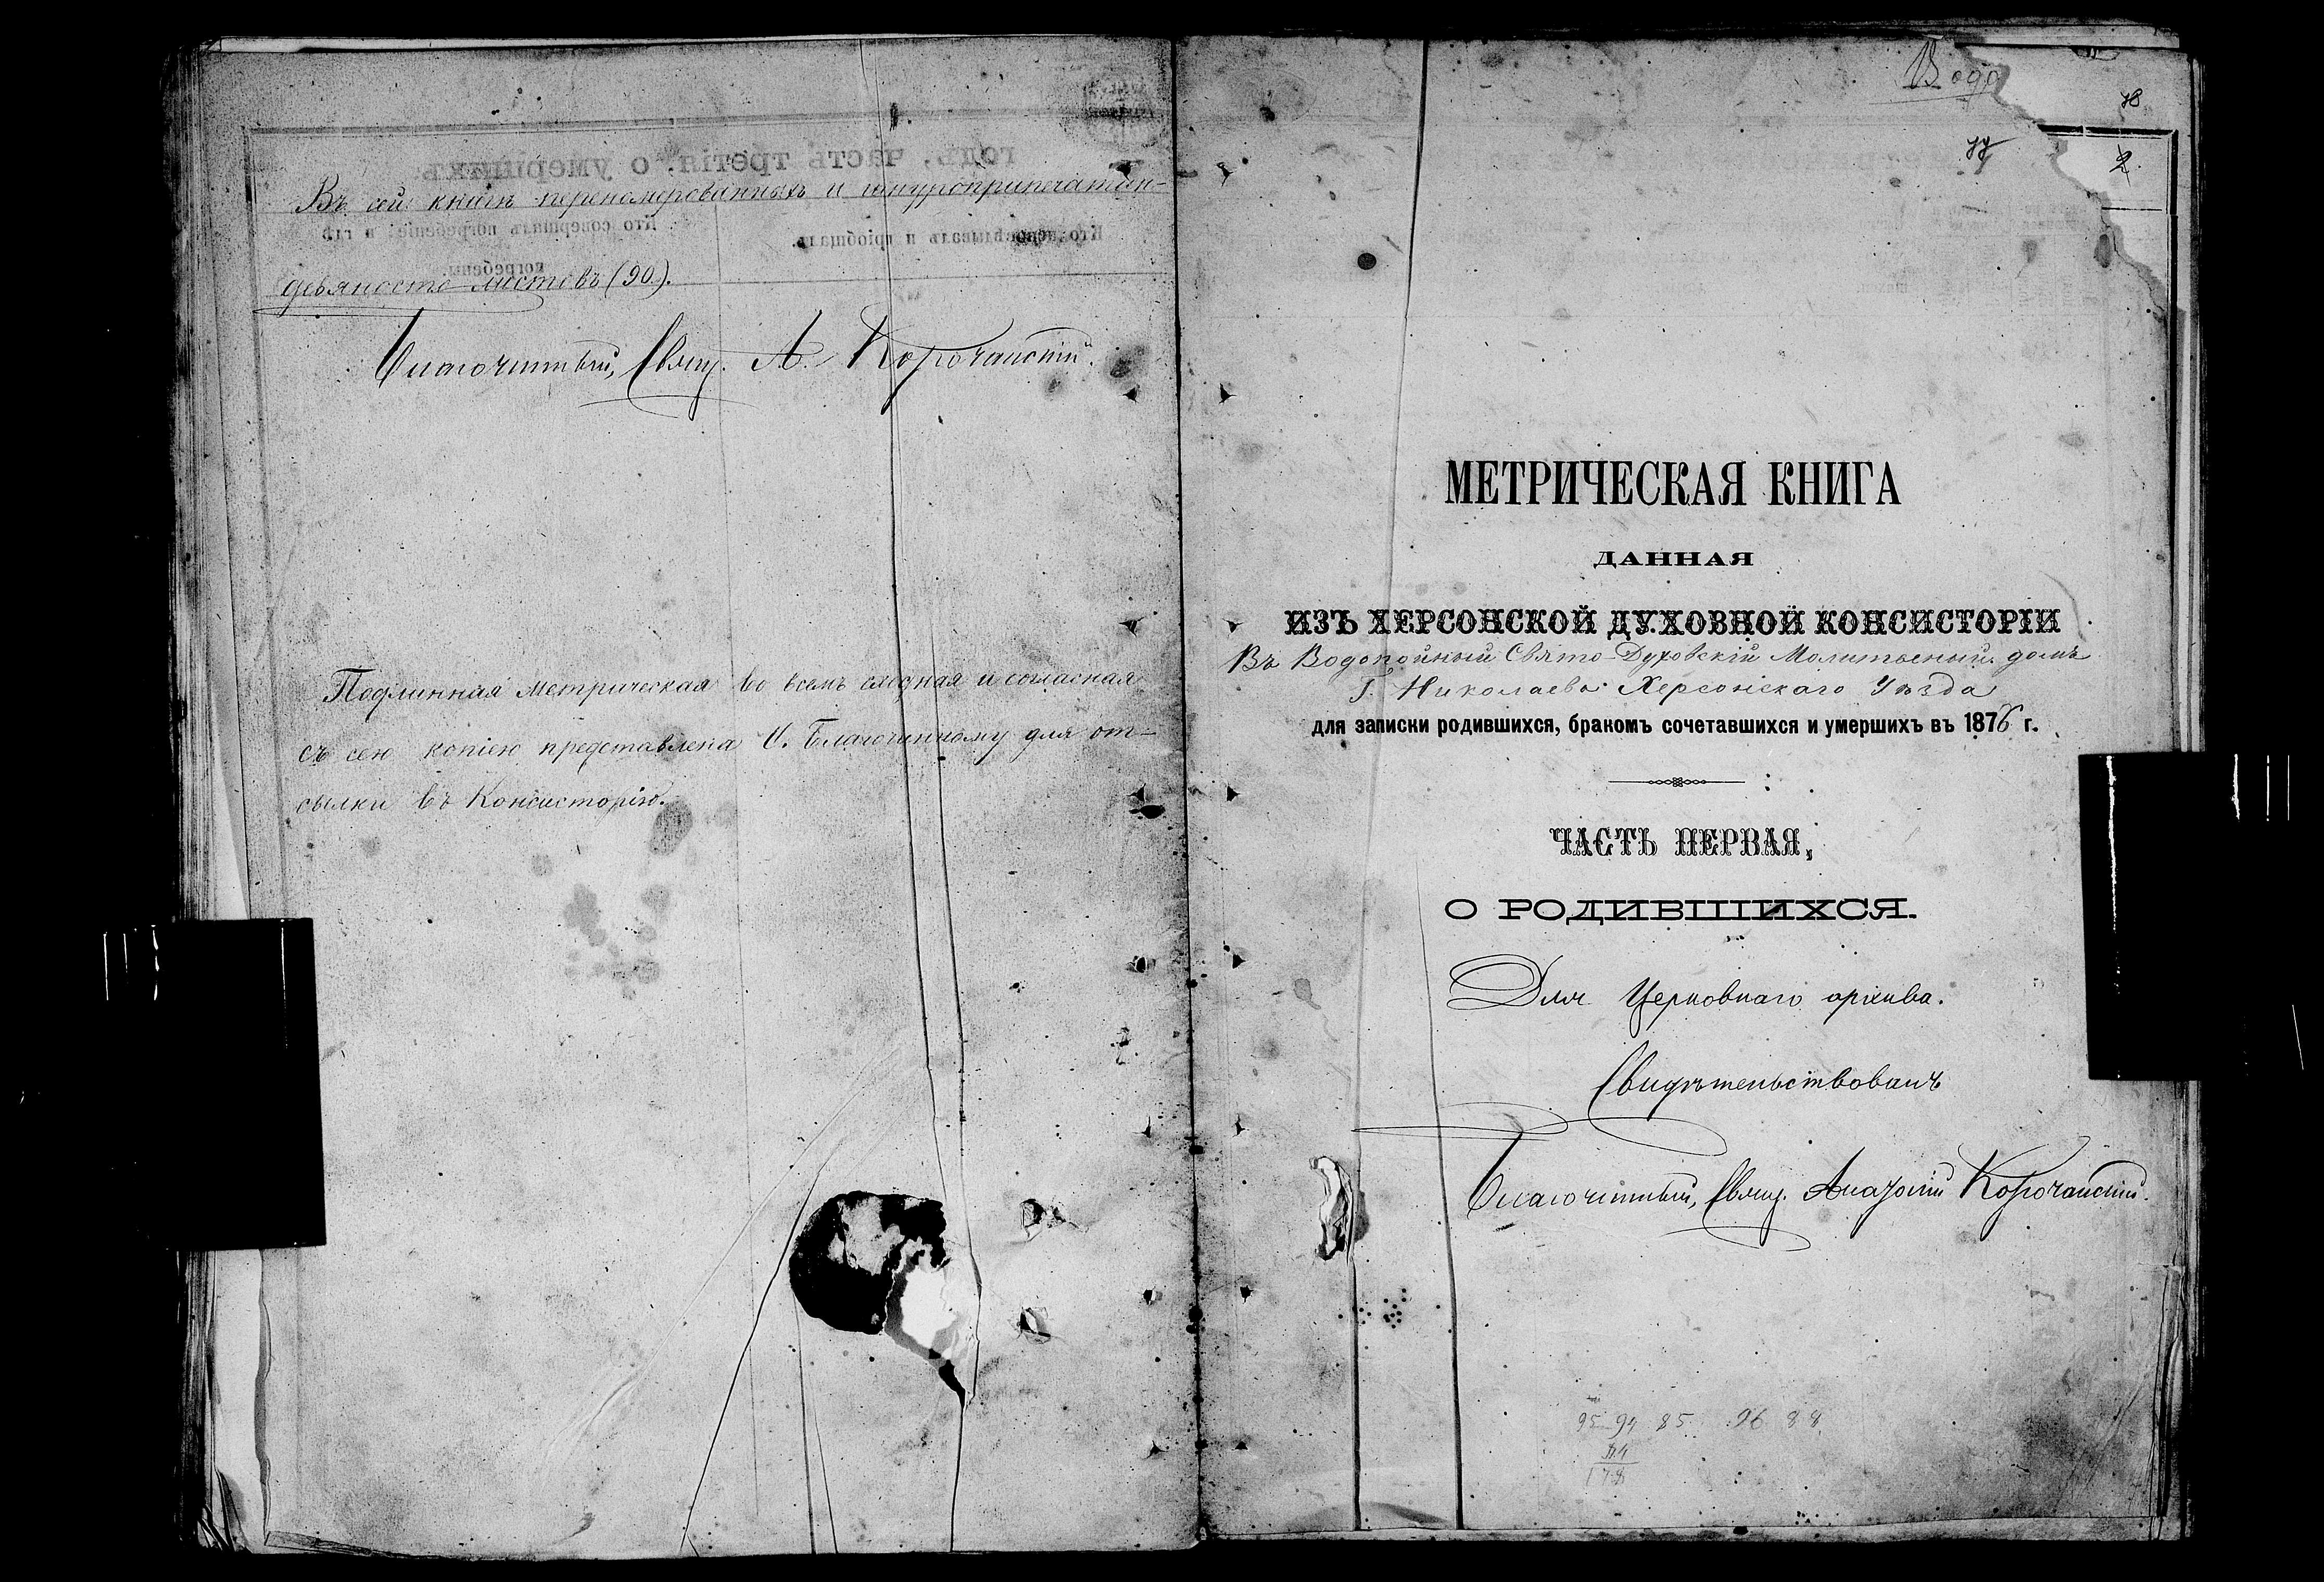 Въ сей книгѣ перенумерованныхъ и шнуроприпечатан-
девяносто листовъ (90).
Благочинный, Свящ. А. Корочанскій.
Подлинная метрическая во всемъ сходная и согласная
съ сею копіею представлена О. Благочинному для от-
сылки въ Консисторію.
Водо
78
77
2.
МЕТРИЧЕСКАЯ КНИГА
ДАННАЯ
ИЗЪ ХЕРСОНСКОЙ ДУХОВНОЙ КОНСИСТОРІИ
Въ Водопойный Свято-Духовскій Молитвеный домъ
Г. Николаева Херсонскаго Уѣзда
для записки родившихся, бракомъ сочетавшихся и умершихъ въ 1876 г.
ЧАСТЬ ПЕРВАЯ,
О РОДИВШИХСЯ.
Для Церковнаго архива.
Свидѣтельствовалъ
Благочинный, Свящ. Корочанскій.
95 94 85 96 88
178